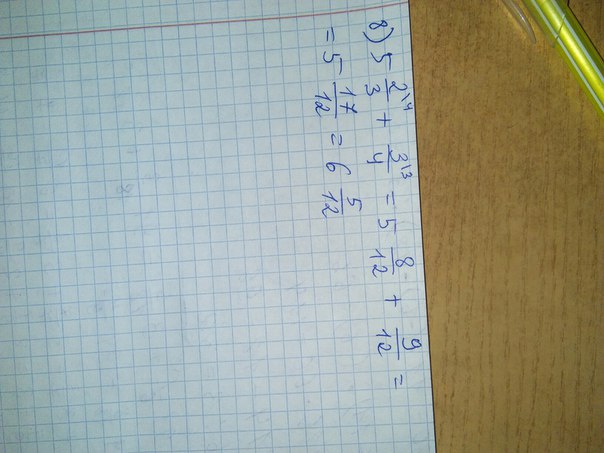 8) 5 2\4/3 + 3\3/4 = 5 8/12 + 9/12 =
= 5 17/12 = 6 5/12